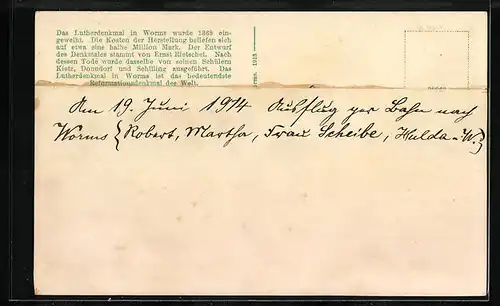 Das Lutherdenkmal in Worms wurde 1868 ein-
geweiht. Die Kosten der Herstellung beliefen sich
auf etwa eine halbe Million Mark. Der Entwurf
des Denkmales stammt von Ernst Rietschel. Nach
dessen Tode wurde dasselbe von seinen Schülern
Kietz, Donndorf und Schilling ausgeführt. Das
Lutherdenkmal in Worms ist das bedeutendste
Reformationsdenkmal der Welt.
1913
Am 19. Juni 1914 Ausflug per Bahn nach
Worms {Robert, Martha, Frau Scheibe, Hulda-W.}